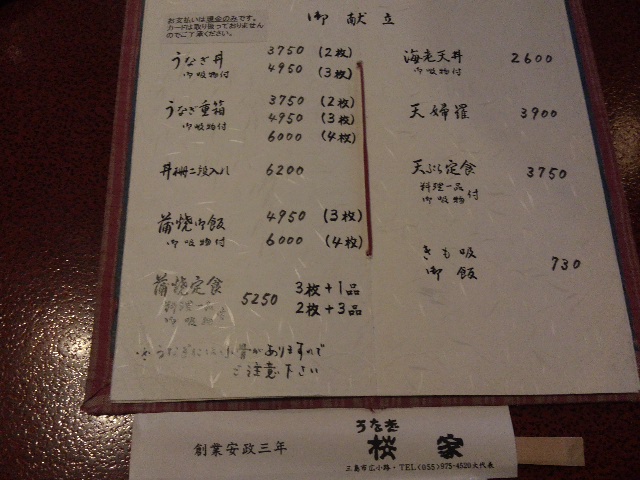 お支払いは現金のみです。
カードは取り扱っておりません
のでご了承ください。
御献立
うなぎ丼 3750 (2枚)
御吸物付 4950 (3枚)
うなぎ重箱 3750 (2枚)
御吸物付 4950 (3枚)
6000 (4枚)
丼 二段入り 6200
蒲焼御飯 4950 (3枚)
御吸物付 6000 (4枚)
蒲焼定食 5250 3枚+1品
料理一品 2枚+3品
御吸物 付
※うなぎには小骨がありますので
ご注意下さい
海老天丼 2600
御吸物付
天婦羅 3900
天ぷら定食 3750
料理一品 付
御吸物
きも吸
御飯 730
創業安政三年
うなぎ
桜家
三島市広小路・TEL(055)975-4520大代表